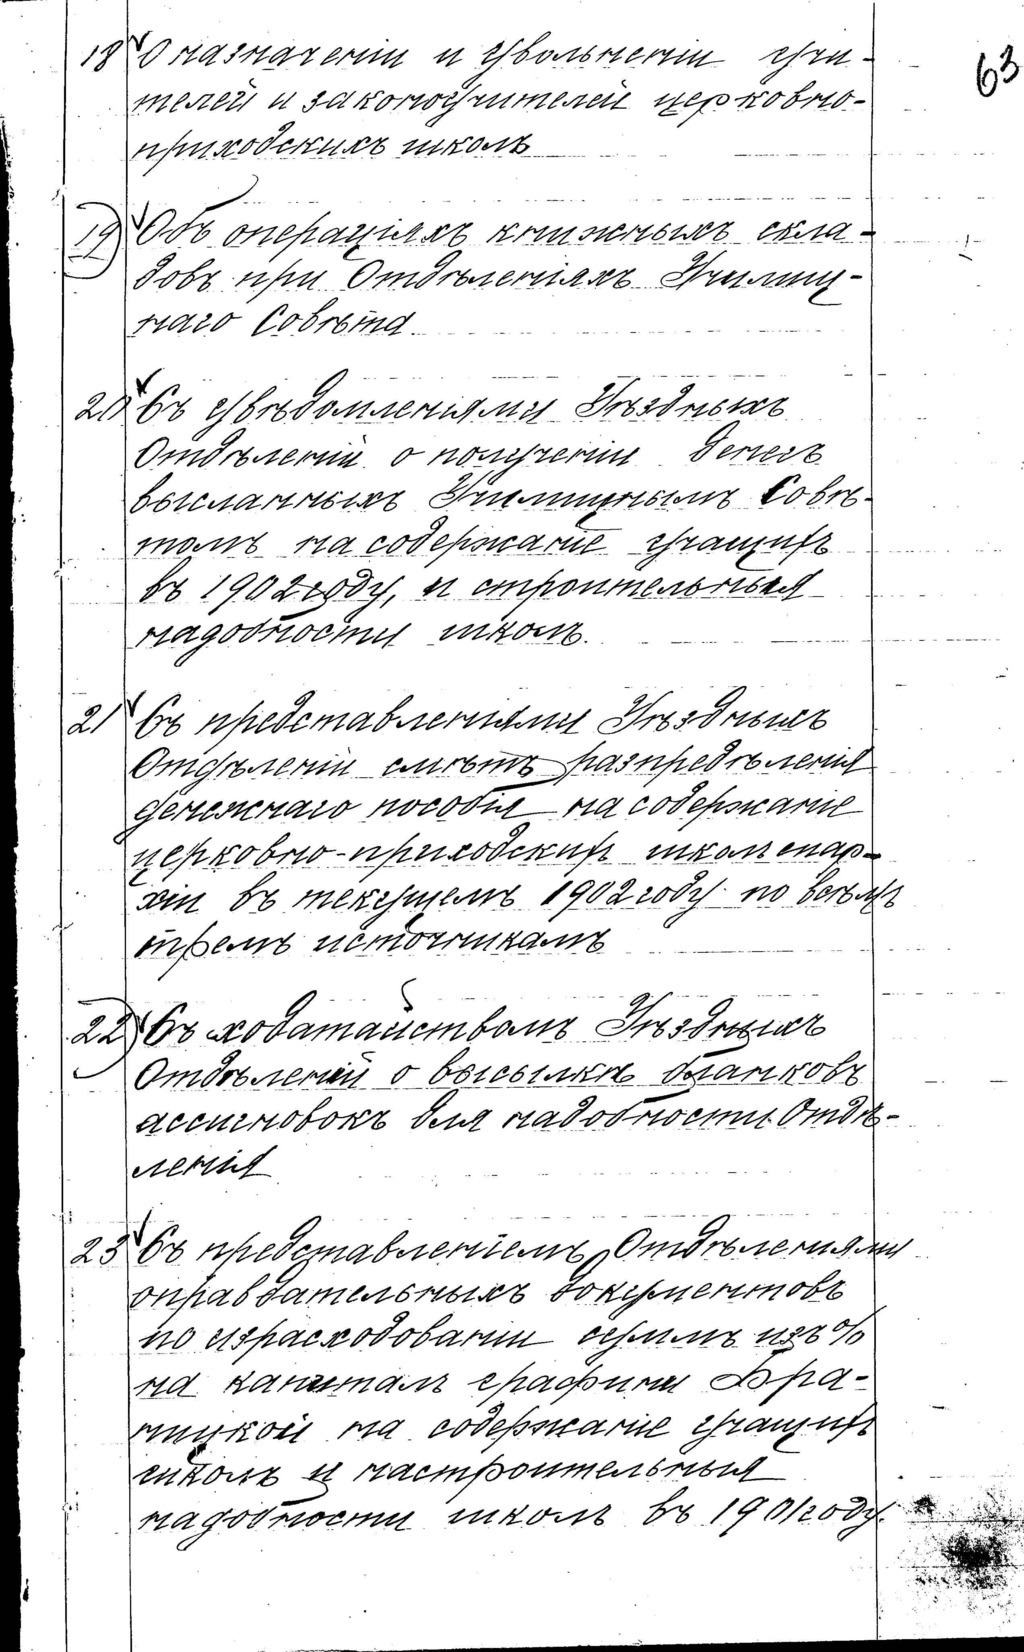 63
18 О назначеніи и увольненіи учи-
телей и законоучителей церковно-
приходскихъ школъ
19 Объ операціяхъ книжныхъ скла-
довъ при Отдѣленіяхъ Училищ-
наго Совѣта
20 Съ увѣдомленіями Уѣздныхъ
Отдѣленій о полученіи денегъ
высланныхъ Училищнымъ Совѣ-
томъ на содержаніе учащихъ
въ 1902 году, и строительныя
надобности школъ.
21 Съ представленіями Уѣздныхъ
Отдѣленій смѣтъ разпредѣленія
денежнаго пособія на содержаніе
церковно-приходскихъ школ епар-
хіи въ текущемъ 1902 году по всѣмъ
тремъ источникамъ
22 Съ ходатайствомъ Уѣздныхъ
Отдѣленій о высылкѣ бланковъ
ассигновокъ для надобности Отдѣ-
ленія
23 Съ представленіемъ Отдѣленіями
оправдательныхъ документовъ
по израсходованіи суммъ изъ %
на капиталъ графини Бра-
ницкой на содержаніе учащихъ
школъ и настроительныя
надобности школъ въ 1901 году.